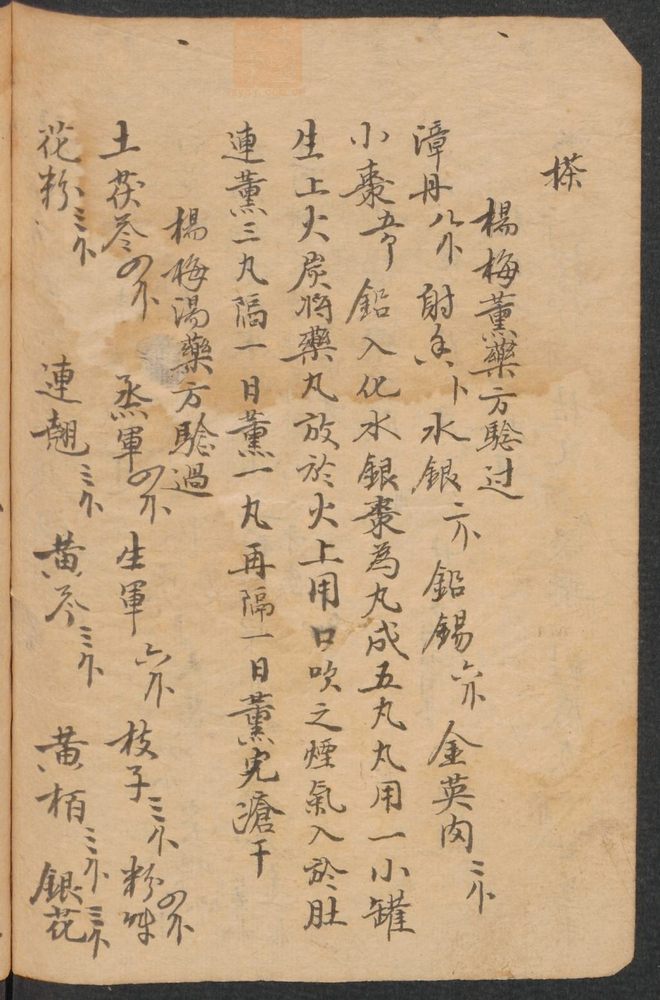 搽
楊梅薰藥方騐过
漳丹八个 射香卜 水銀二个 鉛錫六个 金英肉三个
小棗 鉛入化水銀棗為丸成五丸丸用一小罐
生上火炭将藥丸放於火上用口吹之煙氣入於肚
連薰三丸隔一日薰一丸再隔一日薰完瘡干
楊梅湯藥方騐過
土茯苓四个 烝軍四个 生軍六个 枝子三个 粉 四个
花粉三个 連翹三个 黄芩三个 黄栢三个 銀花三个